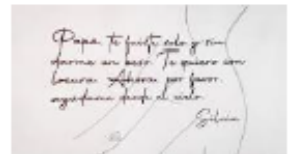 Papa. Te fuiste solo y sin
darme un beso. Te quiero con
locura. Ahora por favor.
ayudame desde el cielo.
Silvia